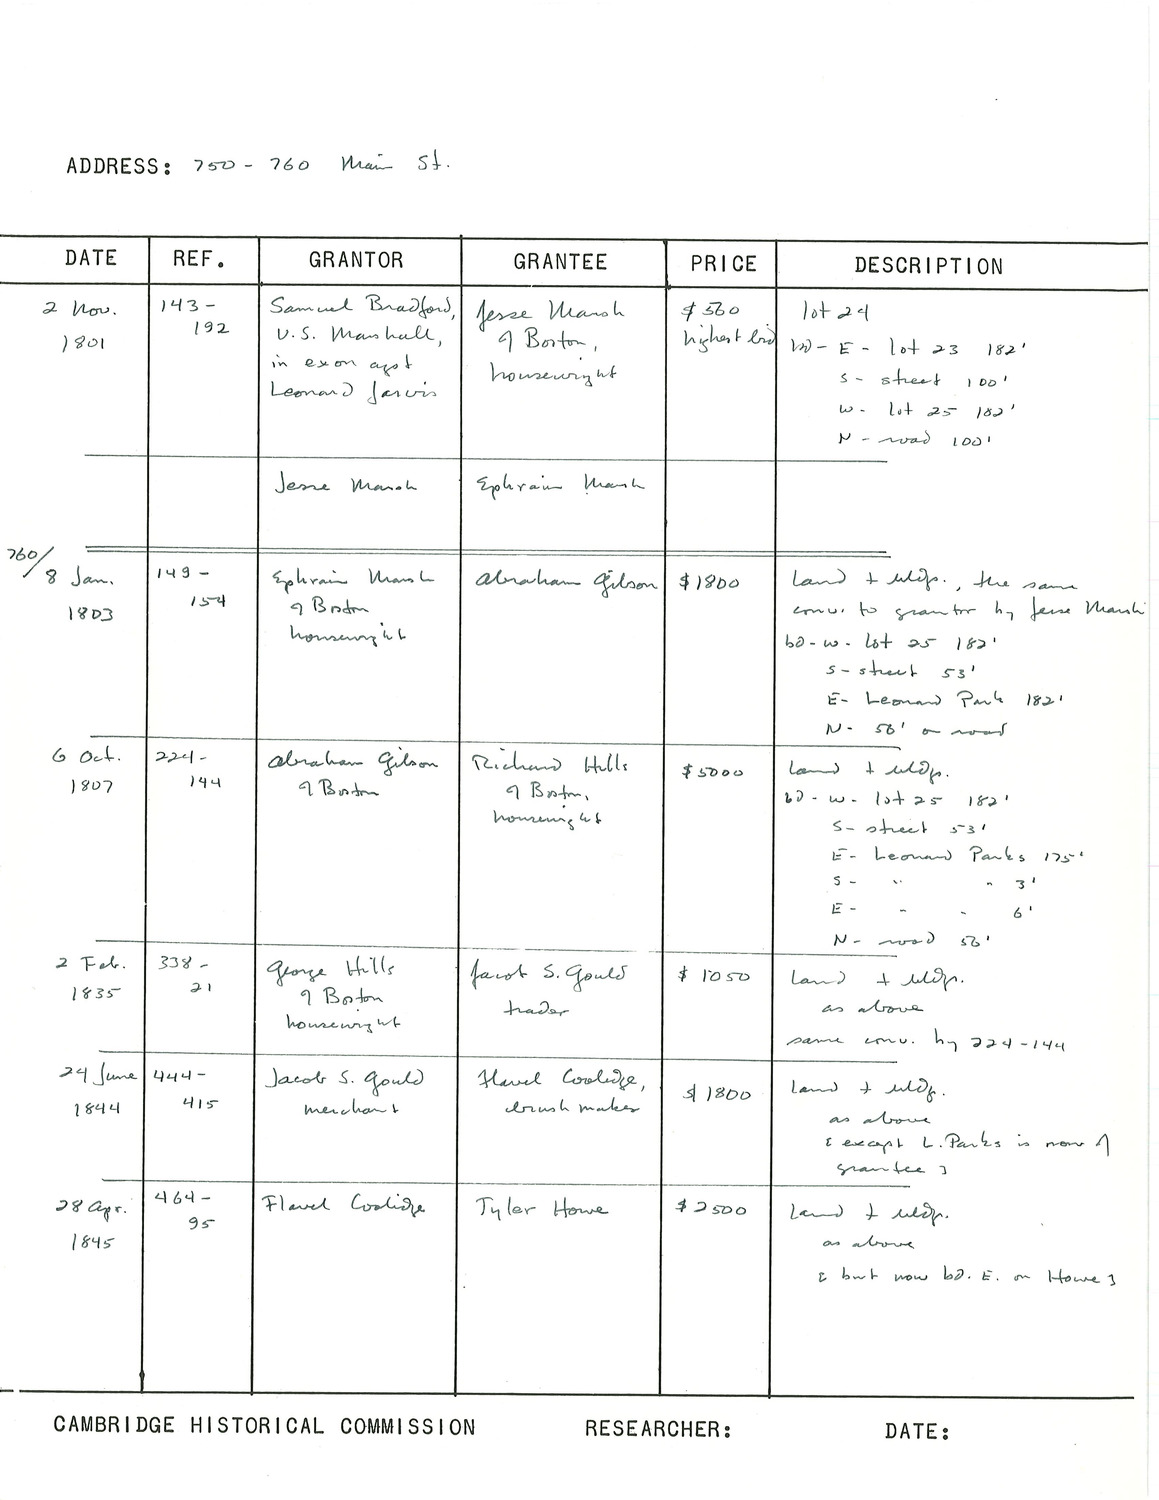 ADDRESS: 750 - 760 Main St.
DATE REF. GRANTOR GRANTEE PRICE DESCRIPTION
2 Nov. 1801
143-192
Samuel Bradford,
U.S. Marshall,
in exon agst
Leonard Jarvis
Jesse Marsh
of Boston,
housewright
$560
highest bid
lot 24
bd - E - lot 23 182'
S - street 100'
W - lot 25 182'
N - road 100'
Jesse Marsh
Ephraim Marsh
760/
8 Jan.
1803
149-
154
Ephraim Marsh
of Boston
housewright
Abraham Gilson
$1800
Land + bldgs., the same
conv. to grantor by Jesse Marsh
bd - W - lot 25 182'
S - street 53'
E - Leonard Park 182'
N - 56' on road
6 Oct.
1807
224-
144
Abraham Gilson
of Boston
Richard Hills
of Boston,
housewright
$5000
Land + bldgs.
bd - W - lot 25 182'
S - street 53'
E - Leonard Parks 175'
S - " " 3'
E - " " 6'
N - road 56'
2 Feb.
1835
338-
21
George Hills
of Boston
housewright
Jacob S. Gould
trader
$1050
Land + bldgs.
as above
same conv. by 224-144
24 June
1844
444-
415
Jacob S. Gould
merchant
Flavel Coolidge,
brush maker
$1800
Land + bldg.
as above
[except L. Parks is now of
grantee]
28 Apr.
1845
464-
95
Flavel Coolidge
Tyler Howe
$2500
Land + bldgs.
as above
[but now bd. E. on Howe]
CAMBRIDGE HISTORICAL COMMISSION RESEARCHER: DATE: